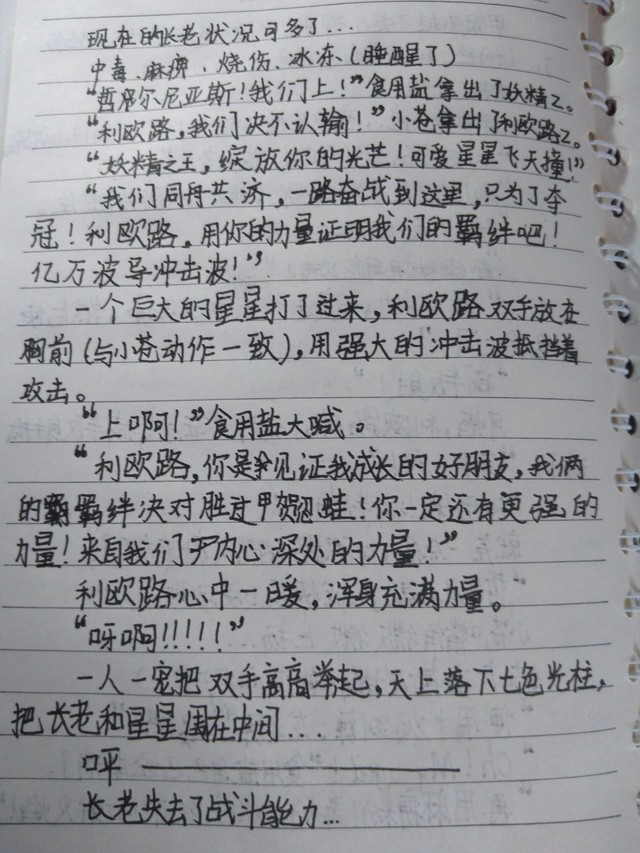 现在的长老状况可多了...
中毒、麻痹、烧伤、冰冻(睡醒了)
“哲尔尼亚斯!我们上!”食用盐拿出了妖精Z。
“利欧路,我们决不认输!”小苍拿出了利欧路Z。
“妖精之王,绽放你的光芒!可爱星星飞天撞!”
“我们同舟共济,一路奋战到这里,只为了夺
冠!利欧路,用你的力量证明我们的羁绊吧!
亿万波导冲击波!”
一个巨大的星星打了过来,利欧路双手放在
胸前(与小苍动作一致),用强大的冲击波抵挡着
攻击。
“上啊!”食用盐大喊。
“利欧路,你是见证我成长的好朋友,我俩
的羁绊决对胜过甲贺忍蛙!你一定还有更强的
力量!来自我们内心深处的力量!”
利欧路心中一暖,浑身充满力量。
“呀啊!!!!!”
一人一宠把双手高高举起,天上落下七色光柱,
把长老和星星围在中间...
呯——————
长老失去了战斗能力...